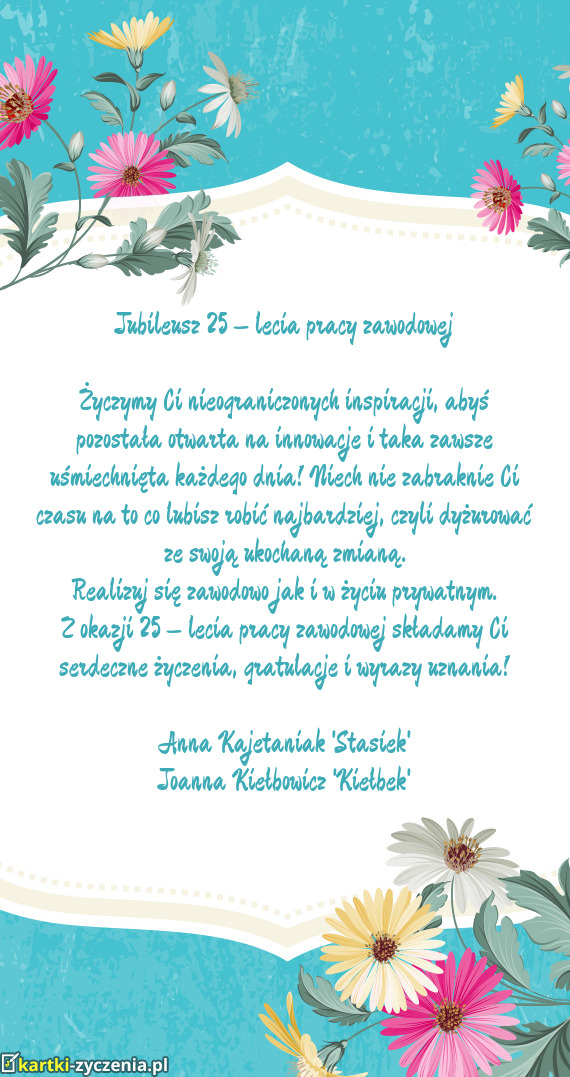 Jubileusz 25 – lecia pracy zawodowej
Życzymy Ci nieograniczonych inspiracji, abyś
pozostała otwarta na innowacje i taka zawsze
uśmiechnięta każdego dnia! Niech nie zabraknie Ci
czasu na to co lubisz robić najbardziej, czyli dyżurować
ze swoją ukochaną zmianą.
Realizuj się zawodowo jak i w życiu prywatnym.
Z okazji 25 – lecia pracy zawodowej składamy Ci
serdeczne życzenia, gratulacje i wyrazy uznania!
Anna Kajetaniak 'Stasiek'
Joanna Kiełbowicz 'Kiełbek'
kartki-zyczenia.pl